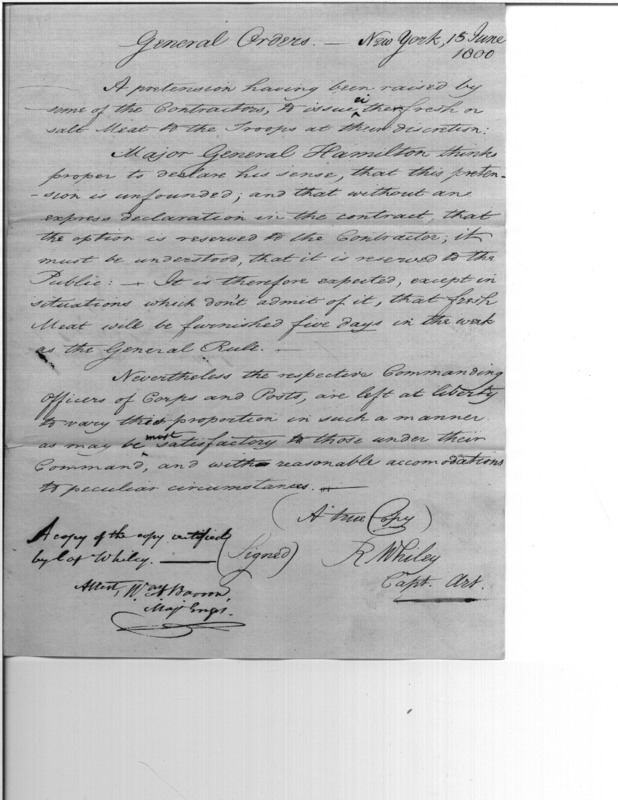 General Orders. — New York, 15 June
1800
A pretension having been raised by
some of the Contractors, to issue either fresh or
salt Meat to the Troops at their discretion:
Major General Hamilton thinks
proper to declare his sense, that this preten-
-sion is unfounded; and that without an
express declaration in the contract, that
the option is reserved to the Contractor, it
must be understood, that it is reserved to the
Public: — It is therefore expected, except in
situations which don't admit of it, that fresh
Meat will be furnished five days in the week
as the General Rule. —
Nevertheless the respective Commanding
Officers of Corps and Posts, are left at liberty
to vary this proportion in such a manner
as may be most satisfactory to those under their
Command, and with reasonable accomodations
to peculiar circumstances. —
(A true Copy)
A copy of the copy certified
by Cap Whiley. — (Signed) R Whiley
Capt. Art.
Attest, Wm A Barron,
Maj Engrs.